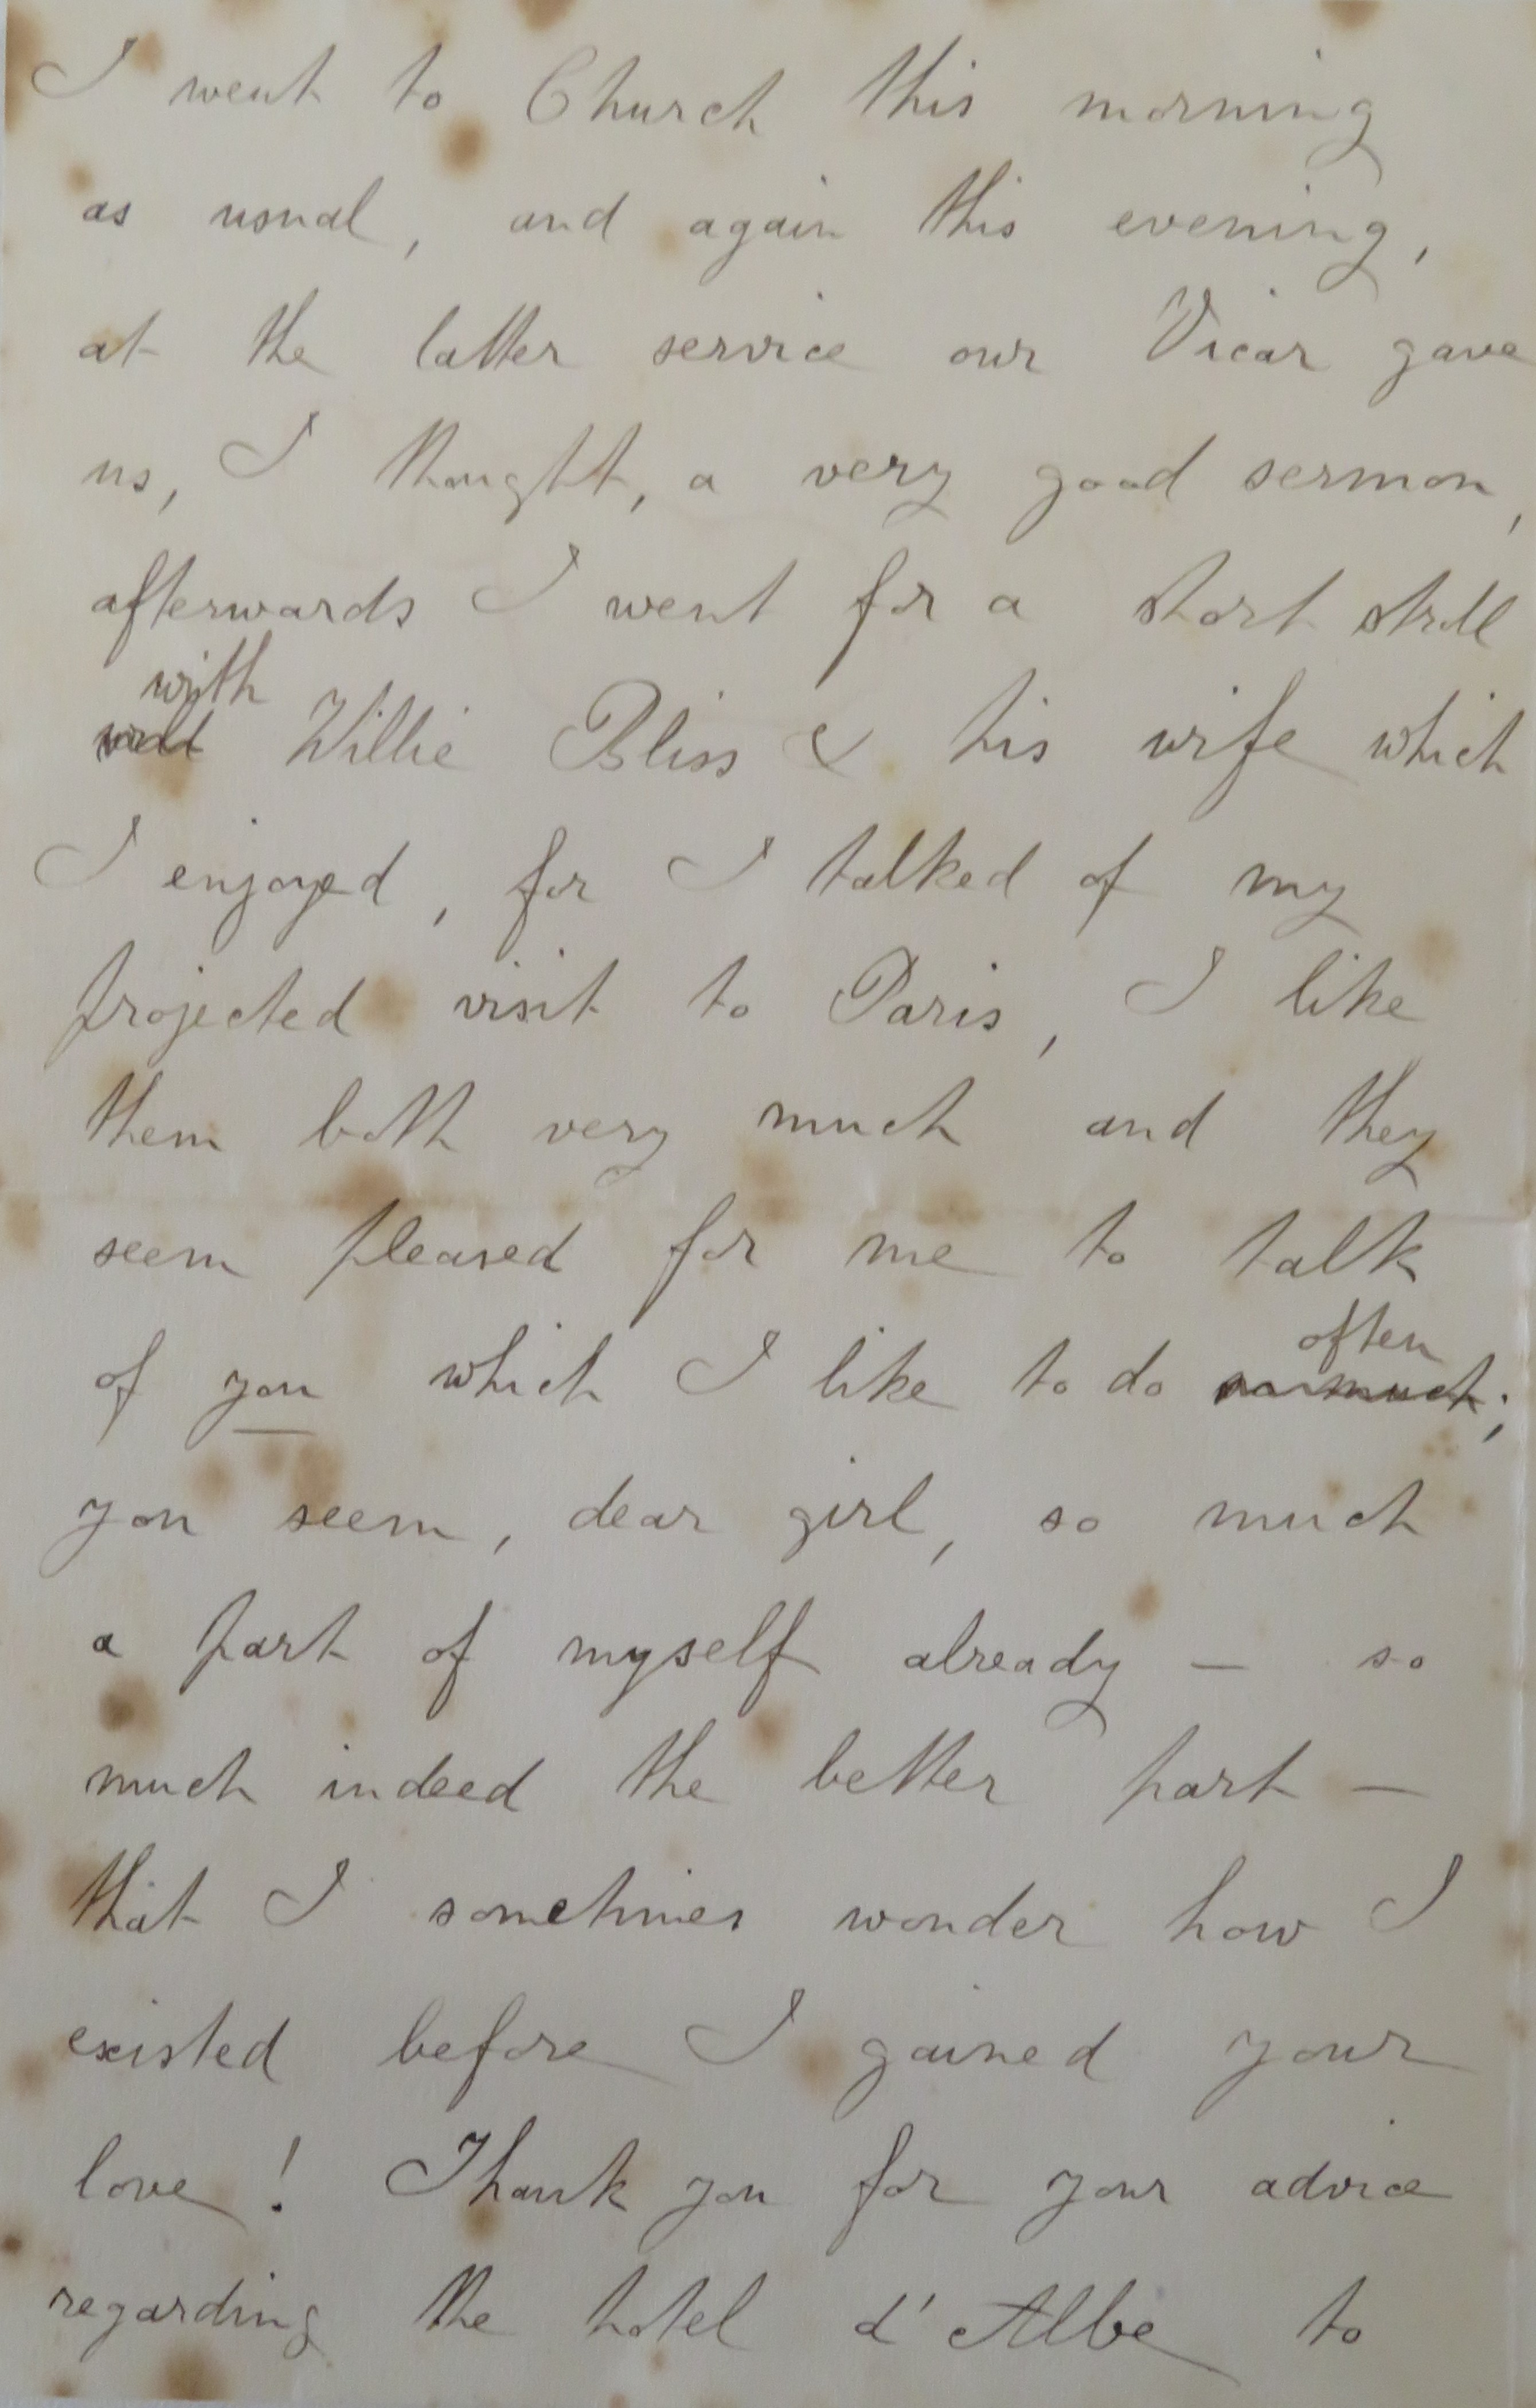 I went to Church this morning
as usual, and again this evening,
at the latter service our Vicar gave
us, I thought, a very good sermon,
afterwards I went for a short stroll
with
Willie Bliss & his wife which
I enjoyed, for I talked of my
projected visit to Paris, I like
them both very much and they
seem pleased for me to talk
often
of you which I like to do so much;
you seem, dear girl, so much
a part of myself already — so
much indeed the better part —
that I sometimes wonder how I
existed before I gained your
love! Thank you for your advice
regarding the hotel d'Albe to